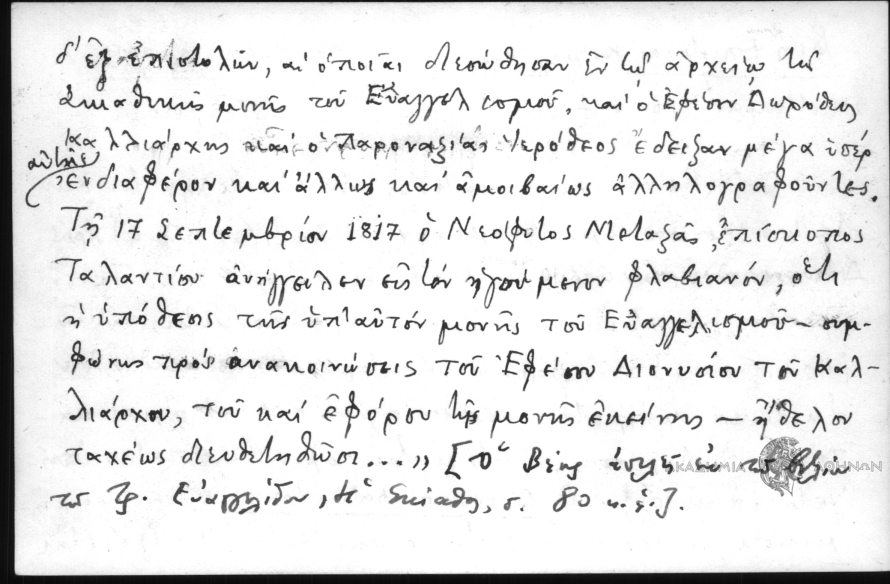 δ' ἐξ ἐπιστολῶν, αἱ ὁποῖαι διεσώθησαν ἐν τῷ ἀρχείῳ τῆς
μονῆς τοῦ Εὐαγγελισμοῦ, καὶ ὁ Ἐφέσου Δωρόθεος
Καλλιάρχης καὶ ὁ Παροναξίας Ἱερόθεος ἔδειξαν μέγα ὑπέρ
αὐτῆς
ἐνδιαφέρον καὶ ἄλλως καὶ ἀμοιβαίως ἀλληλογραφοῦντες.
Τῇ 17 Σεπτεμβρίου 1817 ὁ Νεόφυτος Μεταξᾶς, ἐπίσκοπος
Ταλαντίου ἀνήγγειλεν εἰς τὸν ἡγούμενον Φλαβιανόν, ὅτι
ἡ ὑπόθεσις τῆς ὑπ' αὐτόν μονῆς τοῦ Εὐαγγελισμοῦ – συμ-
φώνως πρὸς ἀνακοινώσεις τοῦ Ἐφέσου Διονυσίου τοῦ Καλ-
λιάρχου, τοῦ καὶ ἐφόρου τῆς μονῆς ἐκείνης – ἤθελον
ταχέως διευθετηθῶσι...» [Ὁ Βέης ἐκ τοῦ βιβλίου
τοῦ Τρ. Εὐαγγελίδου, Ἡ Σκίαθος, σ. 80 κ. ἑ.].
ΑΚΑΔΗΜΙΑ ΑΘΗΝΩΝ